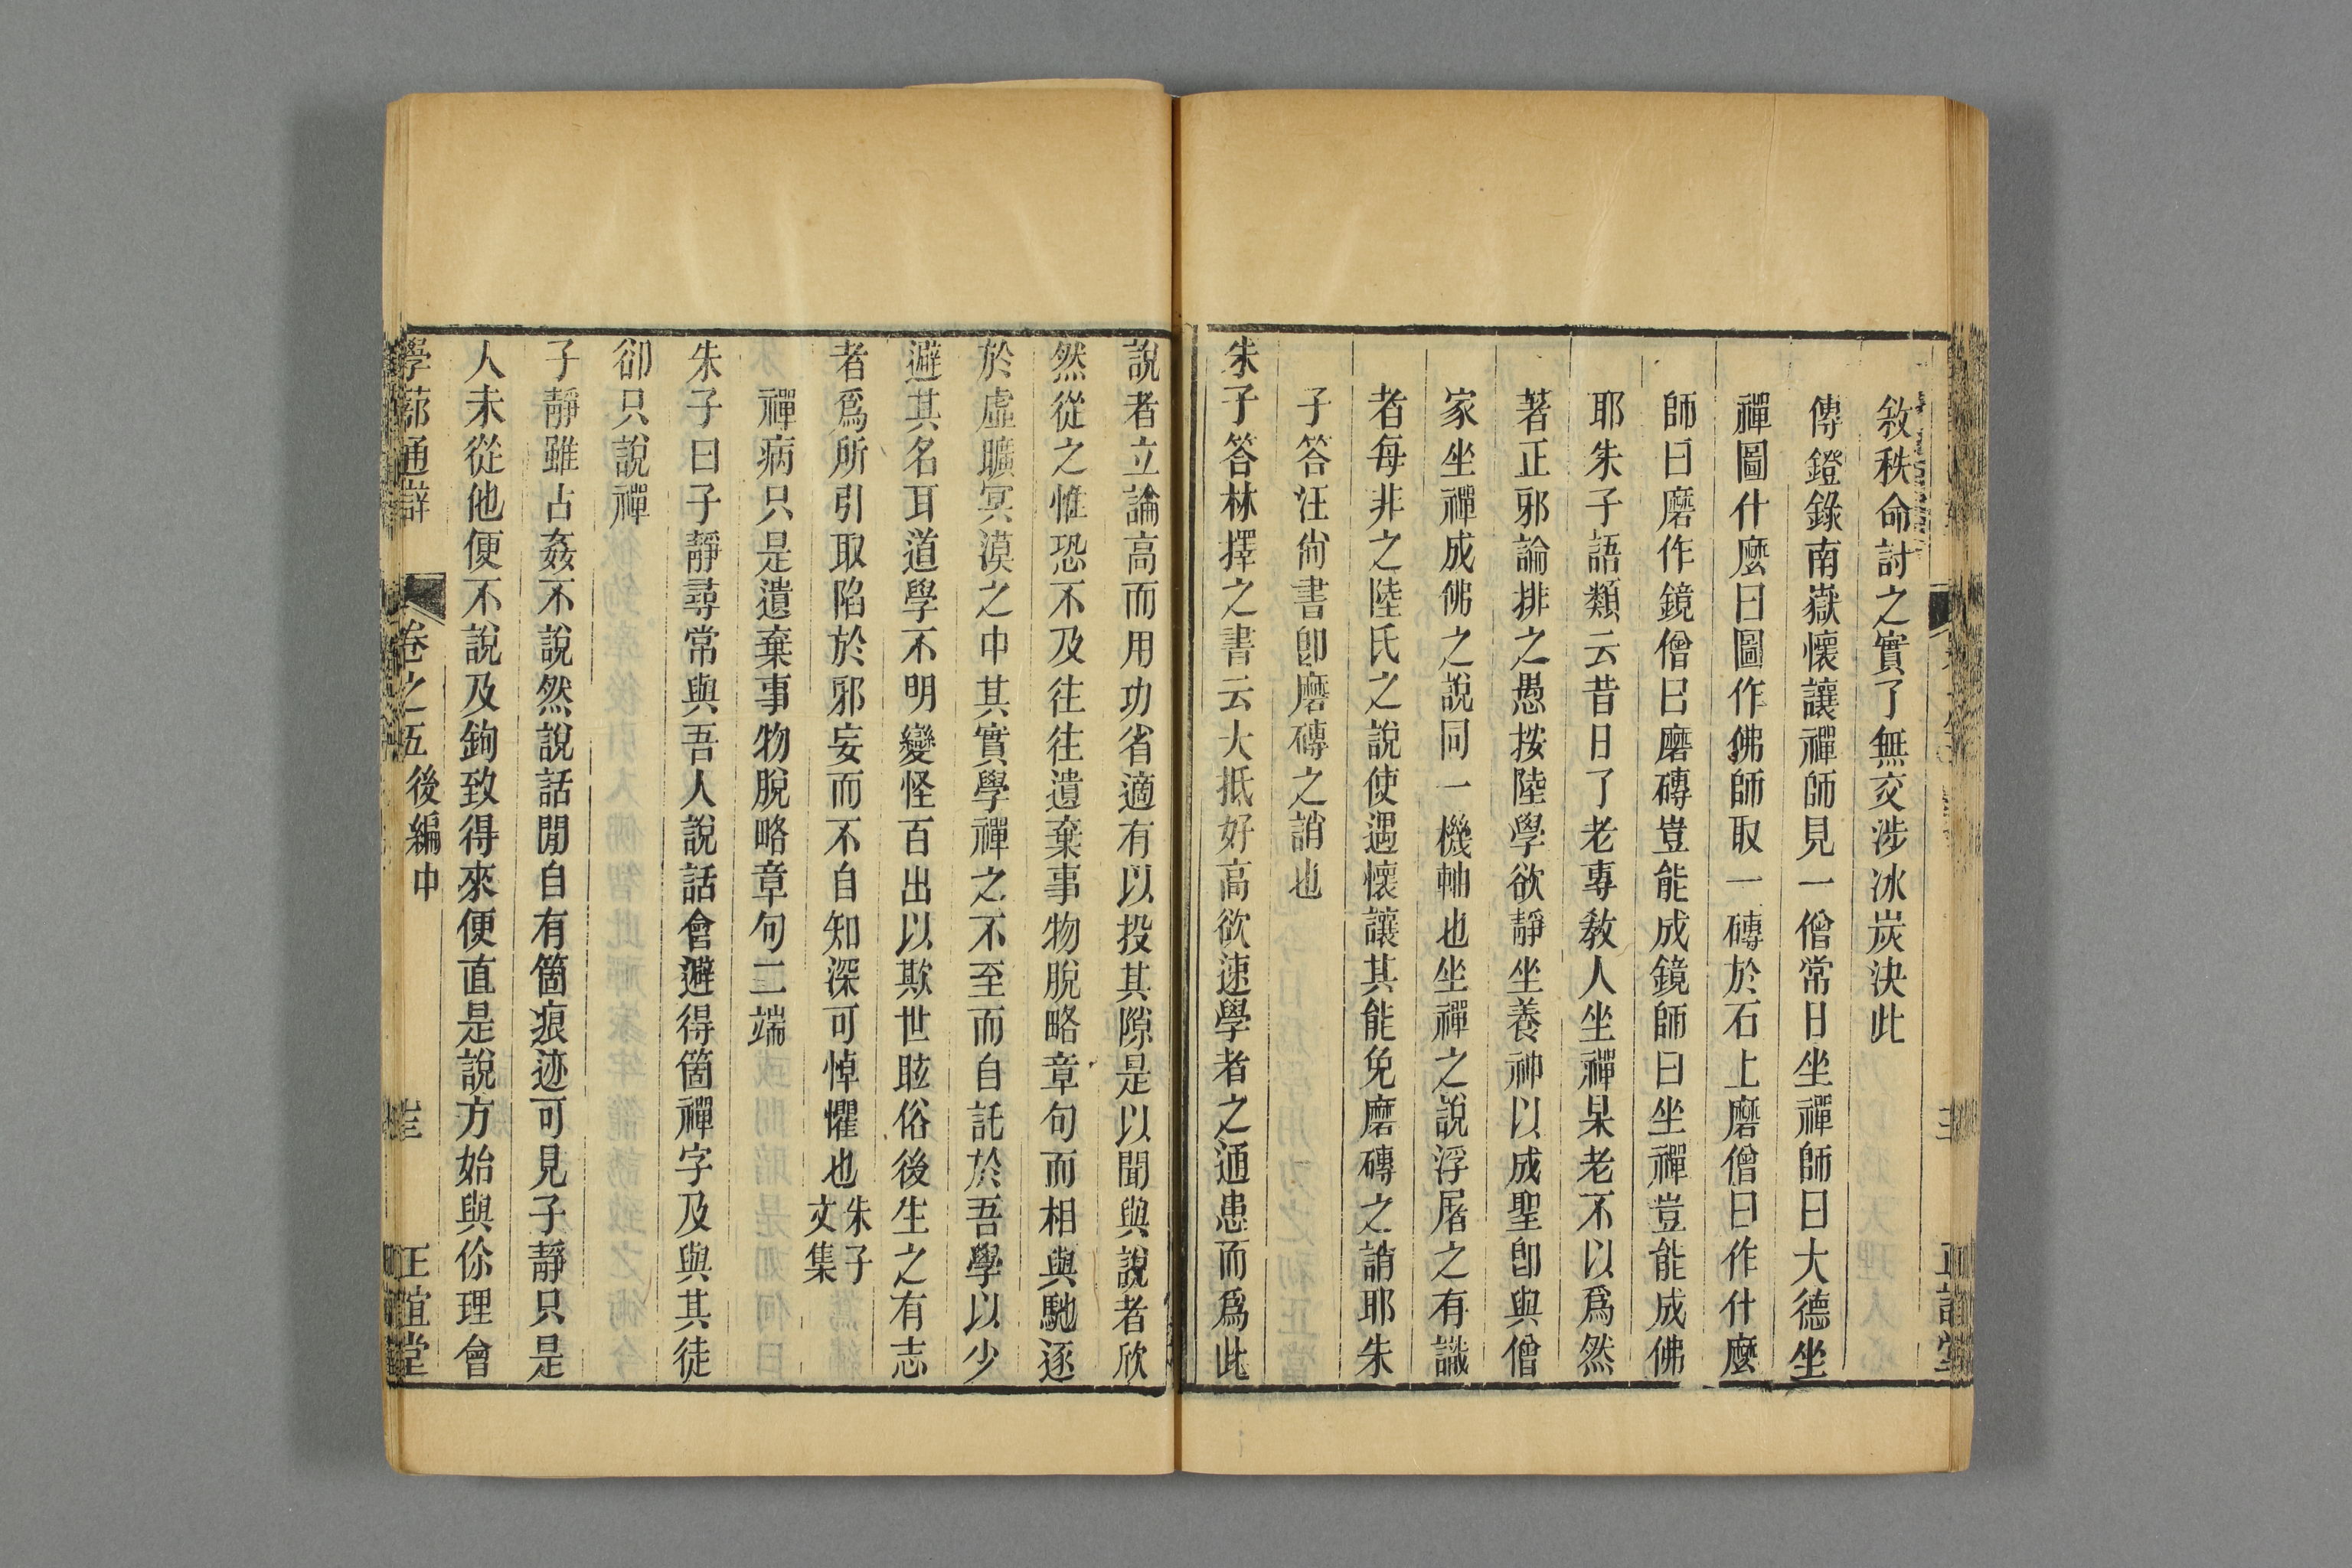 敘秩命討之實了無交涉冰炭決此
傳鐙錄南嶽懷讓禪師見一僧常日坐禪師曰大德坐
禪圖什麼曰圖作佛師取一磚於石上磨僧曰作什麼
師曰磨作鏡僧曰磨磚豈能成鏡師曰坐禪豈能成佛
耶朱子語類云昔日了老專教人坐禪杲老不以爲然
著正邪論排之愚按陸學欲靜坐養神以成聖卽與僧
家坐禪成佛之說同一機軸也坐禪之說浮屠之有識
者每非之陸氏之說使遇懷讓其能免磨磚之誚耶朱
子答汪尙書卽磨磚之誚也
朱子答林擇之書云大抵好高欲速學者之通患而爲此
說者立論高而用功省適有以投其隙是以聞與說者欣
然從之惟恐不及往往遺棄事物脫略章句而相與馳逐
於虛曠冥漠之中其實學禪之不至而自託於吾學以少
避其名耳道學不明變怪百出以欺世眩俗後生之有志
者爲所引取陷於邪妄而不自知深可悼懼也朱子文集
禪病只是遺棄事物脫略章句二端
朱子曰子靜尋常與吾人說話會避得箇禪字及與其徒
卻只說禪
子靜雖占姦不說然說話閒自有箇痕迹可見子靜只是
人未從他便不說及鉤致得來便直是說方始與你理會
學蔀通辯 卷之五 後編中 正誼堂